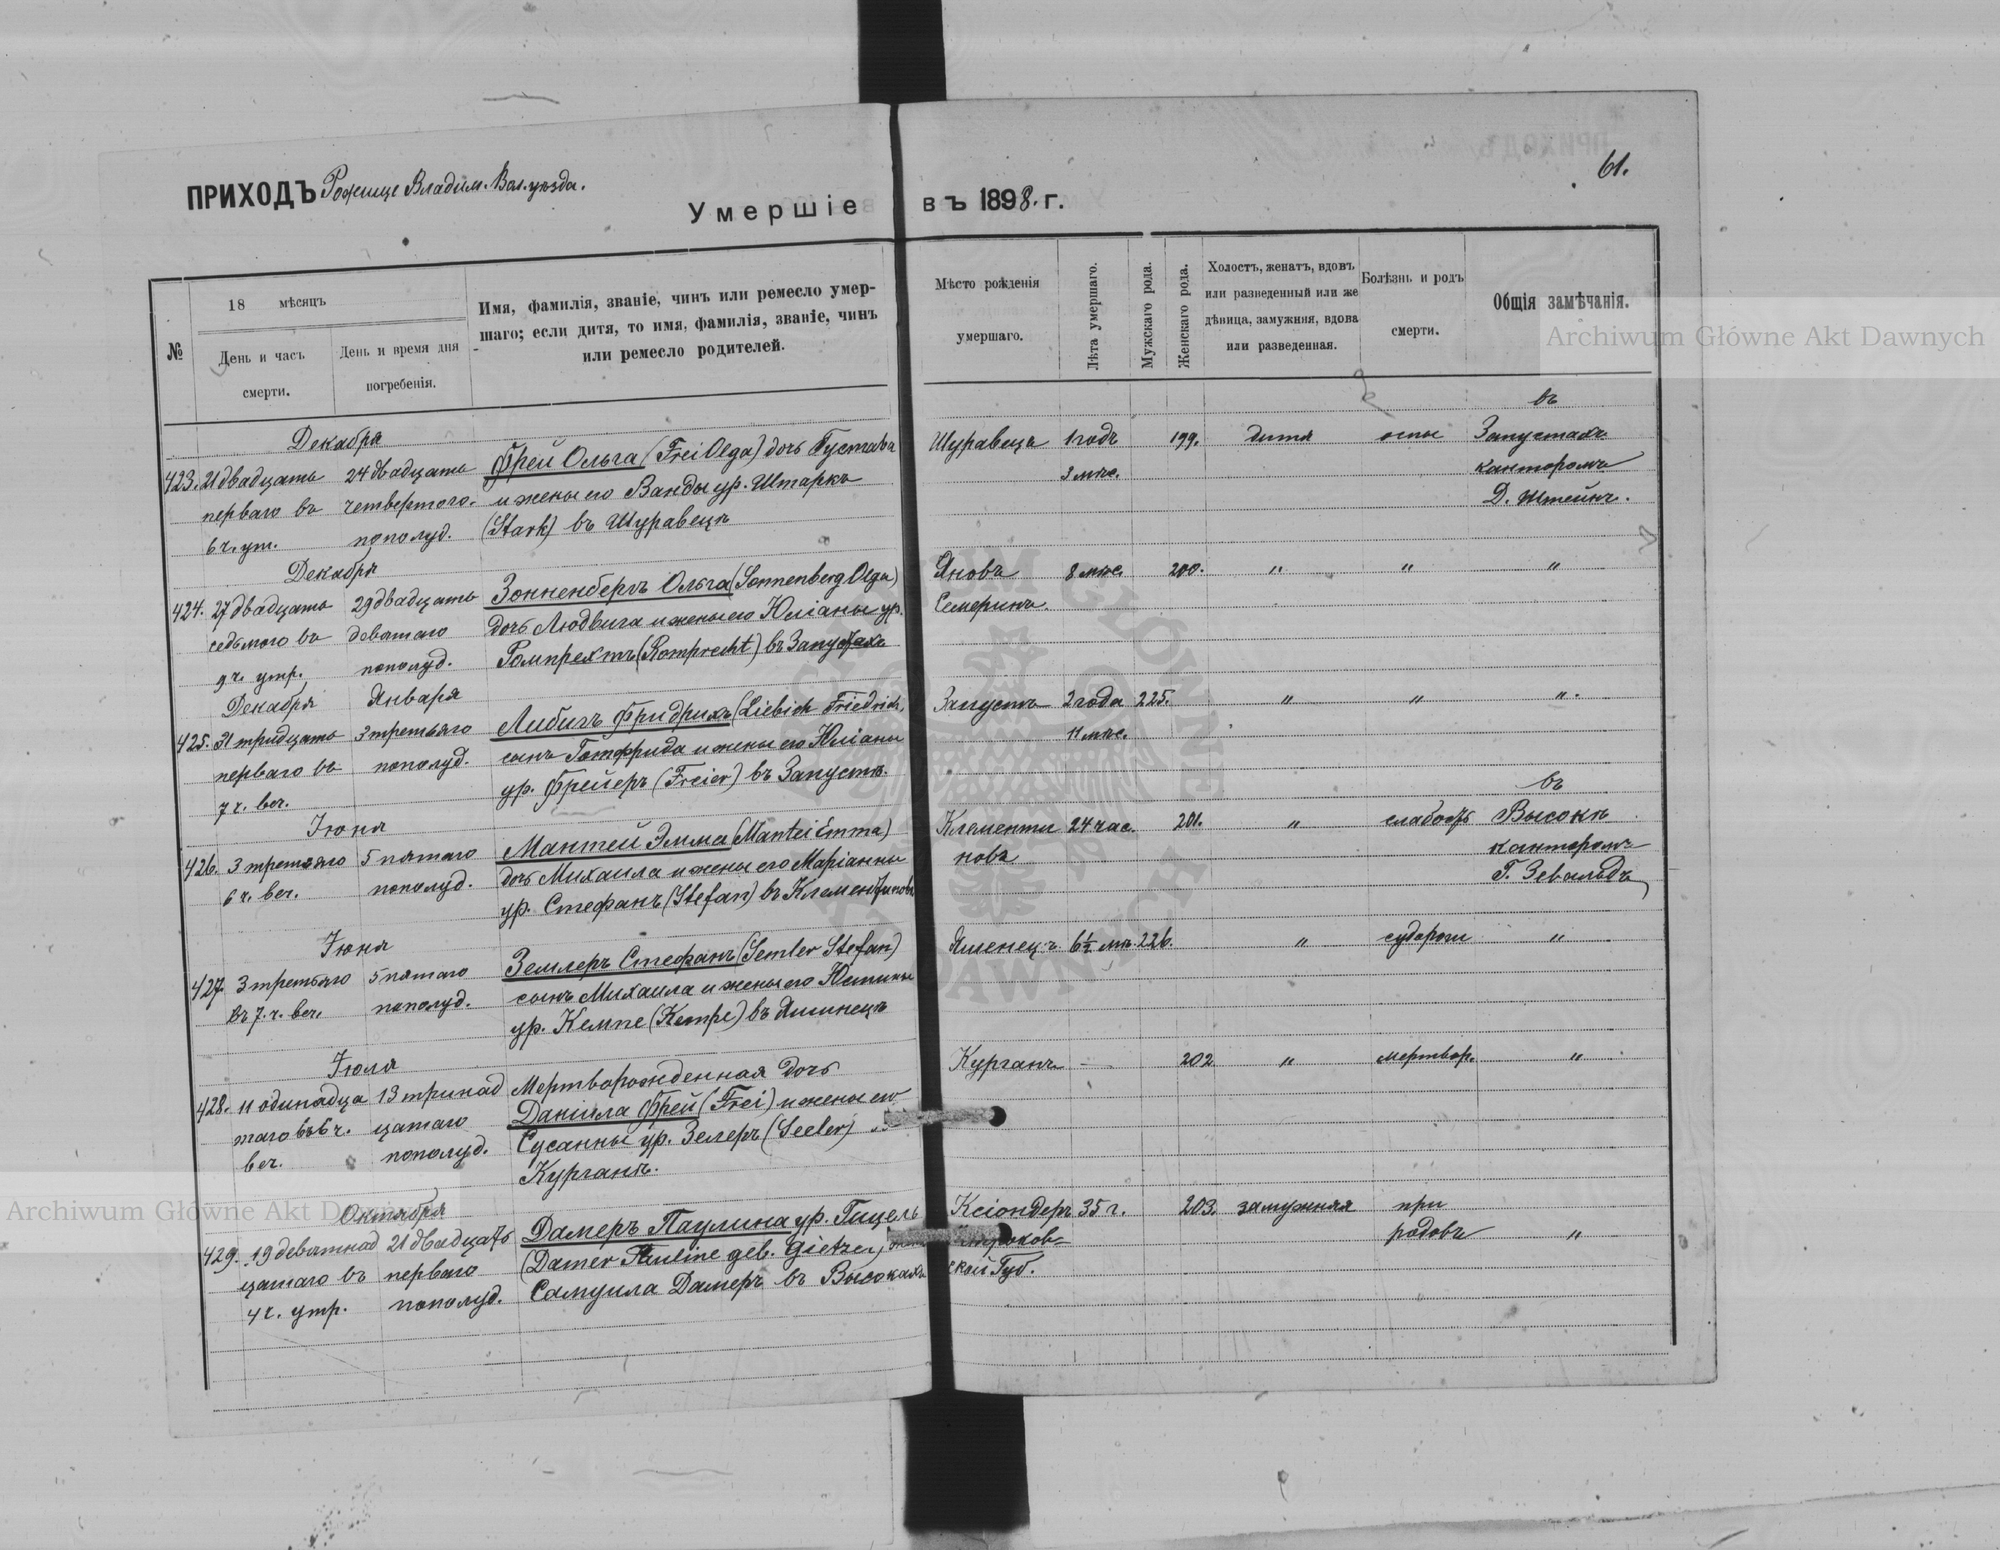 ПРИХОДЪ Рожище Владим. Вол. уѣзда.
61.
Умершіе въ 1898. г.
№
18 мѣсяцъ
День и часъ смерти.
День и время дня погребенія.
Имя, фамилія, званіе, чинъ или ремесло умер-
шаго; если дитя, то имя, фамилія, званіе, чинъ
или ремесло родителей.
Мѣсто рожденія
умершаго.
Лѣта умершаго.
Мужскаго рода.
Женскаго рода.
Холостъ, женатъ, вдовъ
или разведенный или же
дѣвица, замужняя, вдова
или разведенная.
Болѣзнь и родъ
смерти.
Общія замѣчанія.
Archiwum Główne Akt Dawnych
Декабря
423. 21 двадцать
перваго въ
6 ч. ут.
24 двадцать
четвертого.
пополуд.
Фрей Ольга (Frei Olga) дочь Густава
и жены его Ванды ур. Штаркъ
(Stark) въ Щуравецѣ
Щуравецъ
1 годъ
3 мѣс.
199.
дитя
оспы
въ
Запустахъ
канторомъ
Д. Штейнъ.
Декабря
424. 27 двадцать
седьмого въ
9 ч. утр.
29 двадцать
девятаго
пополуд.
Зонненбергъ Ольга (Sonnenberg Olga)
дочь Людвига и жены его Юліаны ур.
Ромпрехтъ (Romprecht) въ Запустахъ
Яновъ
Семеринъ.
8 мѣс.
200.
"
"
"
Декабря
Января
425. 31 тридцать
перваго въ
7 ч. веч.
3 третьяго
пополуд.
Либихъ Фридрихъ (Liebich Friedrich,
сынъ Готфрида и жены его Юліаны
ур. Фрейеръ (Freier) въ Запустѣ.
Запустъ
2 года
11 мѣс.
225.
"
"
".
Іюня
426. 3 третьяго
6 ч. веч.
5 пятаго
пополуд.
Мантей Эмма (Mantei Emma)
дочь Михаила и жены его Маріанны
ур. Стефанъ (Stefan) въ Клементиновѣ
Клементи
новъ
24 час.
201.
"
слабость
въ
Высокѣ
канторомъ
Г. Зевальдъ
Іюня
427. 3 третьяго
въ 7. ч. веч.
5 пятаго
пополуд.
Землеръ Стефанъ (Semler Stefan)
сынъ Михаила и жены его Юстины
ур. Кемпе (Kempe) въ Яминецѣ
Яменецъ
6½ мѣ.
226.
"
судороги
"
Іюля
428. 11 одинадца
таго въ 6 ч.
веч.
13 тринад
цатаго
пополуд.
Мертворожденная дочь
Даніила Фрей (Frei) и жены его
Сусанны ур. Зелеръ (Seeler) въ
Курганѣ.
Курганъ
—
202
"
мертвор.
"
Октября
429. 19 девятнад
цатаго въ
4 ч. утр.
21 двадцать
перваго
пополуд.
Дамеръ Паулина ур. Гицель
(Damer Pauline geb. Gietzel)
Самуила Дамеръ въ Высокахъ
Ксіондер
ской Губ.
35 г.
203.
замужняя
при
родовъ
"
Archiwum Główne Akt Dawnych